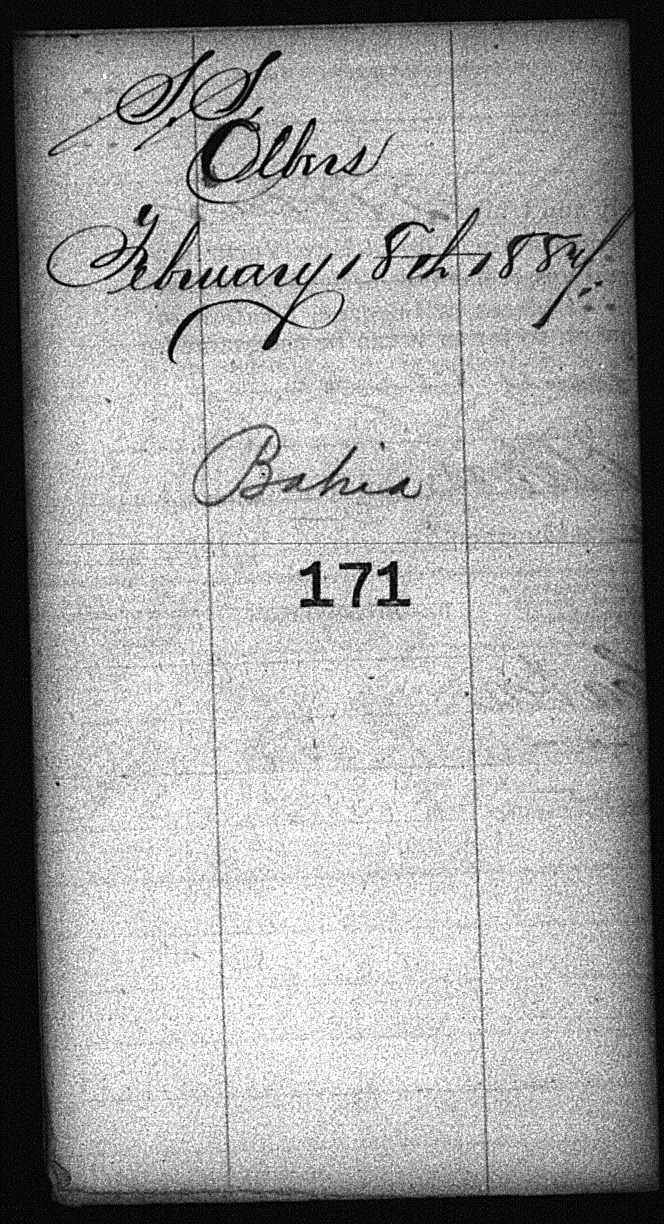 S.S.
Olbers
February 18th 1884.
Bahia
171